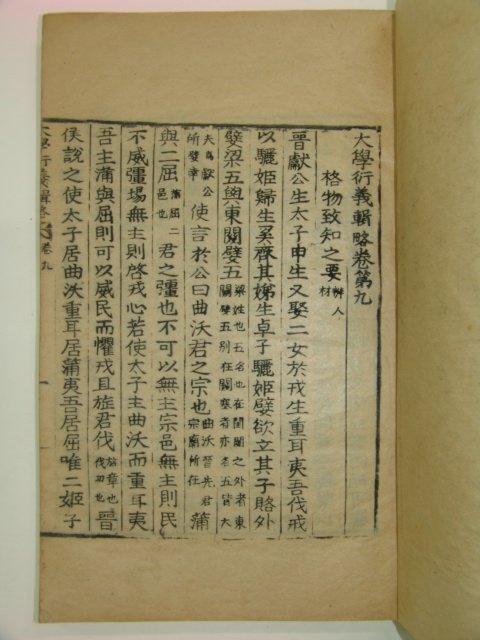 大學衍義輯略卷第九
格物致知之要 辨人材
晉獻公生太子申生又娶二女於戎生重耳夷吾伐戎
以驪姬歸生奚齊其娣生卓子驪姬嬖欲立其子賂外
嬖梁五與東關嬖五 梁姓也五名也在閨闥之外者東關嬖五別在關塞者亦名五皆大
夫爲獻公所嬖幸 使言於公曰曲沃君之宗也 曲沃晉先君宗廟所在 蒲
與二屈 蒲屈二邑也 君之疆也不可以無主宗邑無主則民
不威疆場無主則啓戎心若使太子主曲沃而重耳夷
吾主蒲與屈則可以威民而懼戎且旌君伐 旌章也伐功也 晉
侯說之使太子居曲沃重耳居蒲夷吾居屈唯二姬子
大學衍義輯略 卷九 一